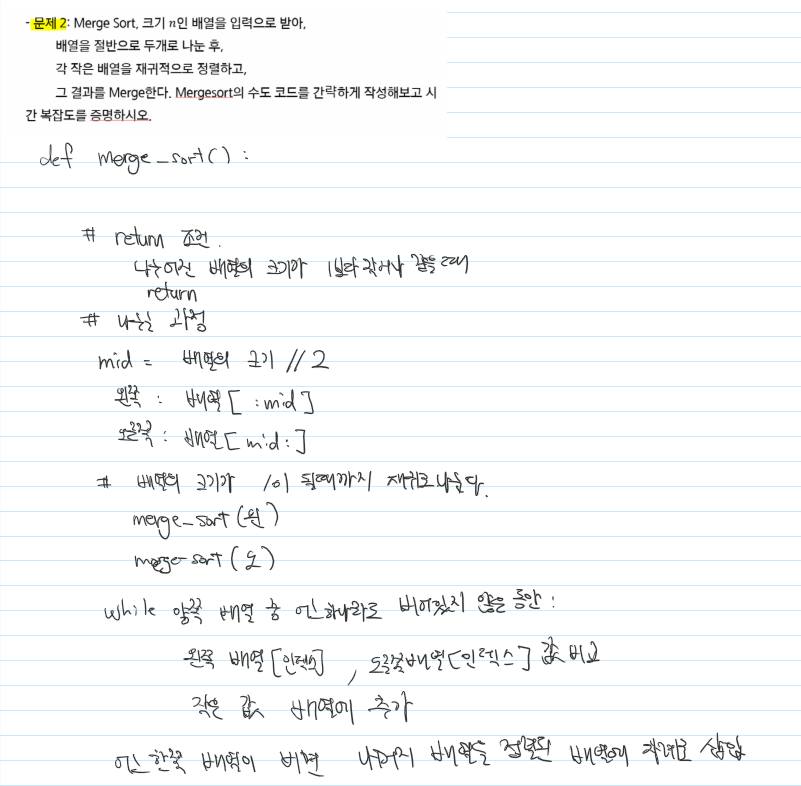 - 문제 2: Merge Sort, 크기 n인 배열을 입력으로 받아,
배열을 절반으로 두개로 나눈 후,
각 작은 배열을 재귀적으로 정렬하고,
그 결과를 Merge한다. Mergesort의 수도 코드를 간략하게 작성해보고 시
간 복잡도를 증명하시오.
def merge_sort() :
# return 조건.
나누어진 배열의 크기가 1보다 작거나 같을 때
return
# 나눈 과정
mid = 배열의 크기 // 2
왼쪽 : 배열[ :mid]
오른쪽 : 배열[mid:]
# 배열의 크기가 1이 될때까지 재귀로 나눈다.
merge_sort(왼)
merge-sort(오)
while 양쪽 배열 중 어느하나라도 비어있지 않은 동안 :
왼쪽 배열[인덱스] , 오른쪽배열[인덱스] 값 비교
작은 값 배열에 추가
어느 한쪽 배열이 비면 나머지 배열을 정렬된 배열에 차례로 삽입